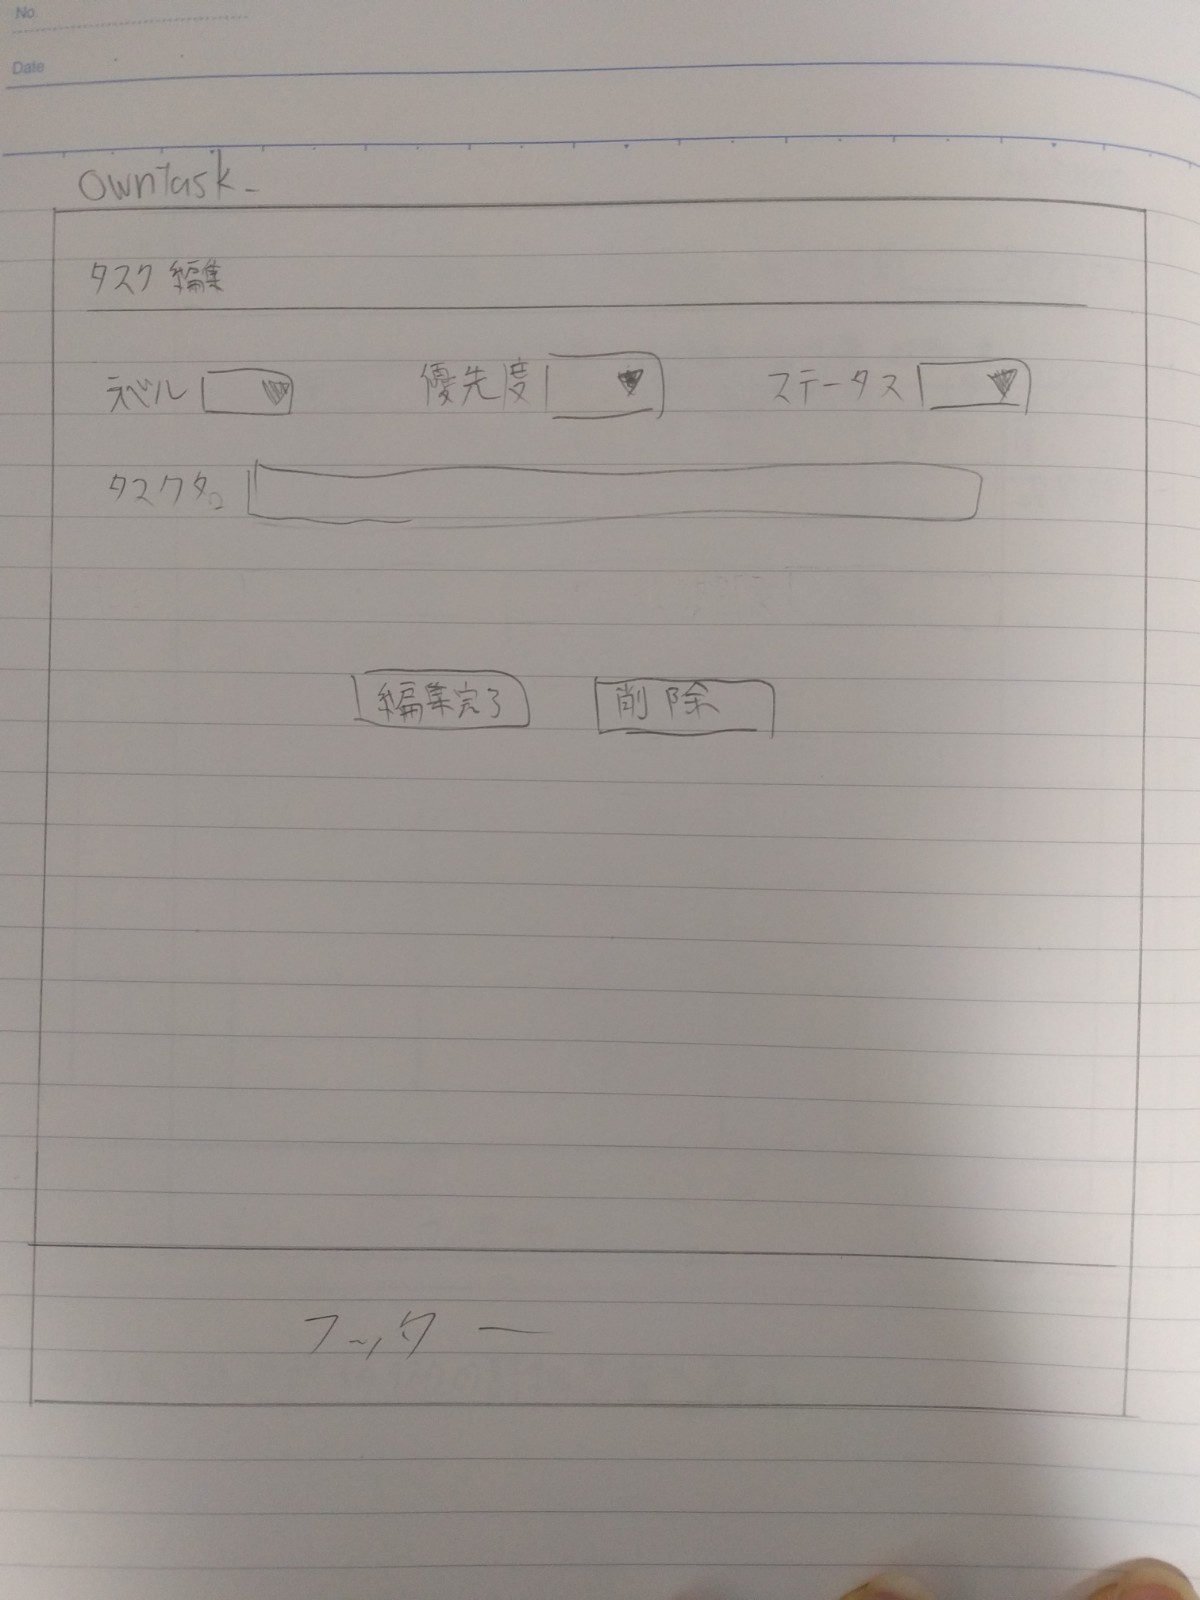 No.
Date
OwnTask
タスク 編集
ラベル 優先度 ステータス
タスク名
編集完了 削除
フッター